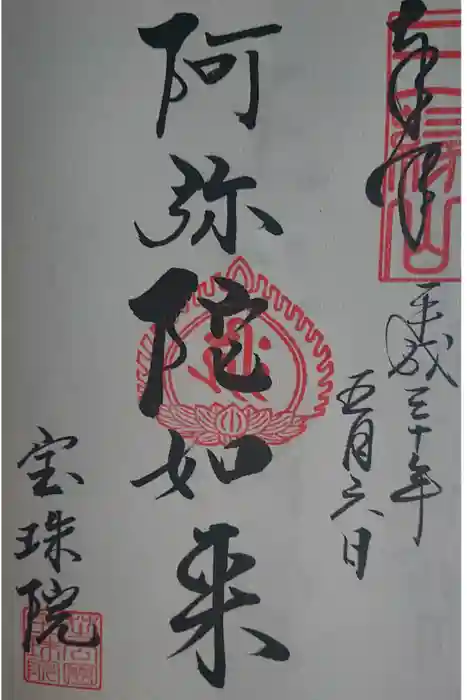 奉拝
平成三十年
五月六日
阿弥陀如来
宝珠院